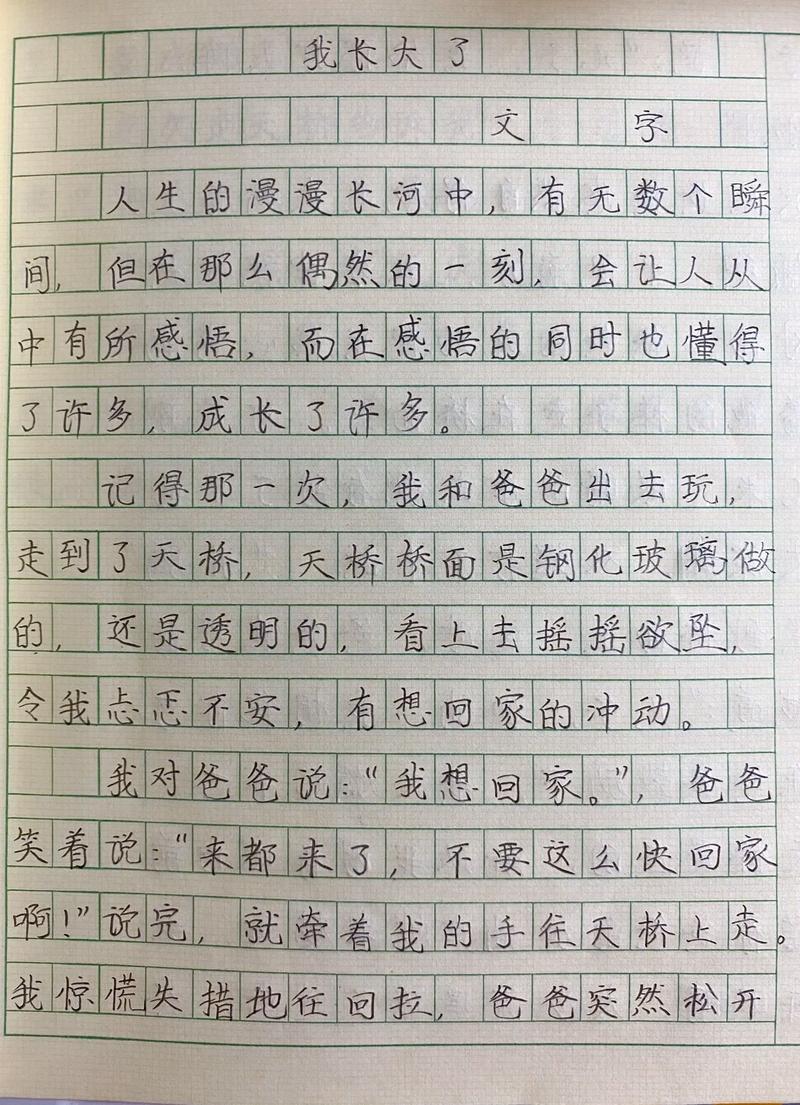 我长大了
文 字
人生的漫漫长河中，有无数个瞬
间，但在那么偶然的一刻，会让人从
中有所感悟，而在感悟的同时也懂得
了许多，成长了许多。
记得那一次，我和爸爸出去玩，
走到了天桥，天桥桥面是钢化玻璃做
的，还是透明的，看上去摇摇欲坠，
令我忐忑不安，有想回家的冲动。
我对爸爸说：“我想回家。”，爸爸
笑着说：“来都来了，不要这么快回家
啊！”说完，就牵着我的手往天桥上走。
我惊慌失措地往回拉，爸爸突然松开